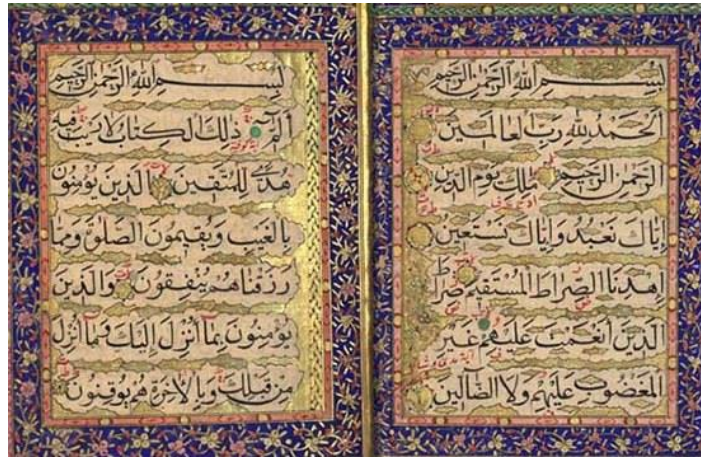 بِسْمِ اللّٰهِ الرَّحْمٰنِ الرَّحِيمِ
اَلْحَمْدُ لِلّٰهِ رَبِّ الْعَالَمِينَ
الرَّحْمٰنِ الرَّحِيمِ مَالِكِ يَوْمِ الدِّينِ
إِيَّاكَ نَعْبُدُ وَإِيَّاكَ نَسْتَعِينُ
اِهْدِنَا الصِّرَاطَ الْمُسْتَقِيمَ صِرَاطَ
الَّذِينَ أَنْعَمْتَ عَلَيْهِمْ غَيْرِ
الْمَغْضُوبِ عَلَيْهِمْ وَلَا الضَّالِّينَ
بِسْمِ اللّٰهِ الرَّحْمٰنِ الرَّحِيمِ
الٓمٓ ذٰلِكَ الْكِتَابُ لَا رَيْبَ فِيهِ
هُدًى لِلْمُتَّقِينَ الَّذِينَ يُؤْمِنُونَ
بِالْغَيْبِ وَيُقِيمُونَ الصَّلٰوةَ وَمِمَّا
رَزَقْنَاهُمْ يُنْفِقُونَ وَالَّذِينَ
يُؤْمِنُونَ بِمَا أُنْزِلَ إِلَيْكَ وَمَا أُنْزِلَ
مِنْ قَبْلِكَ وَبِالْآخِرَةِ هُمْ يُوقِنُونَ